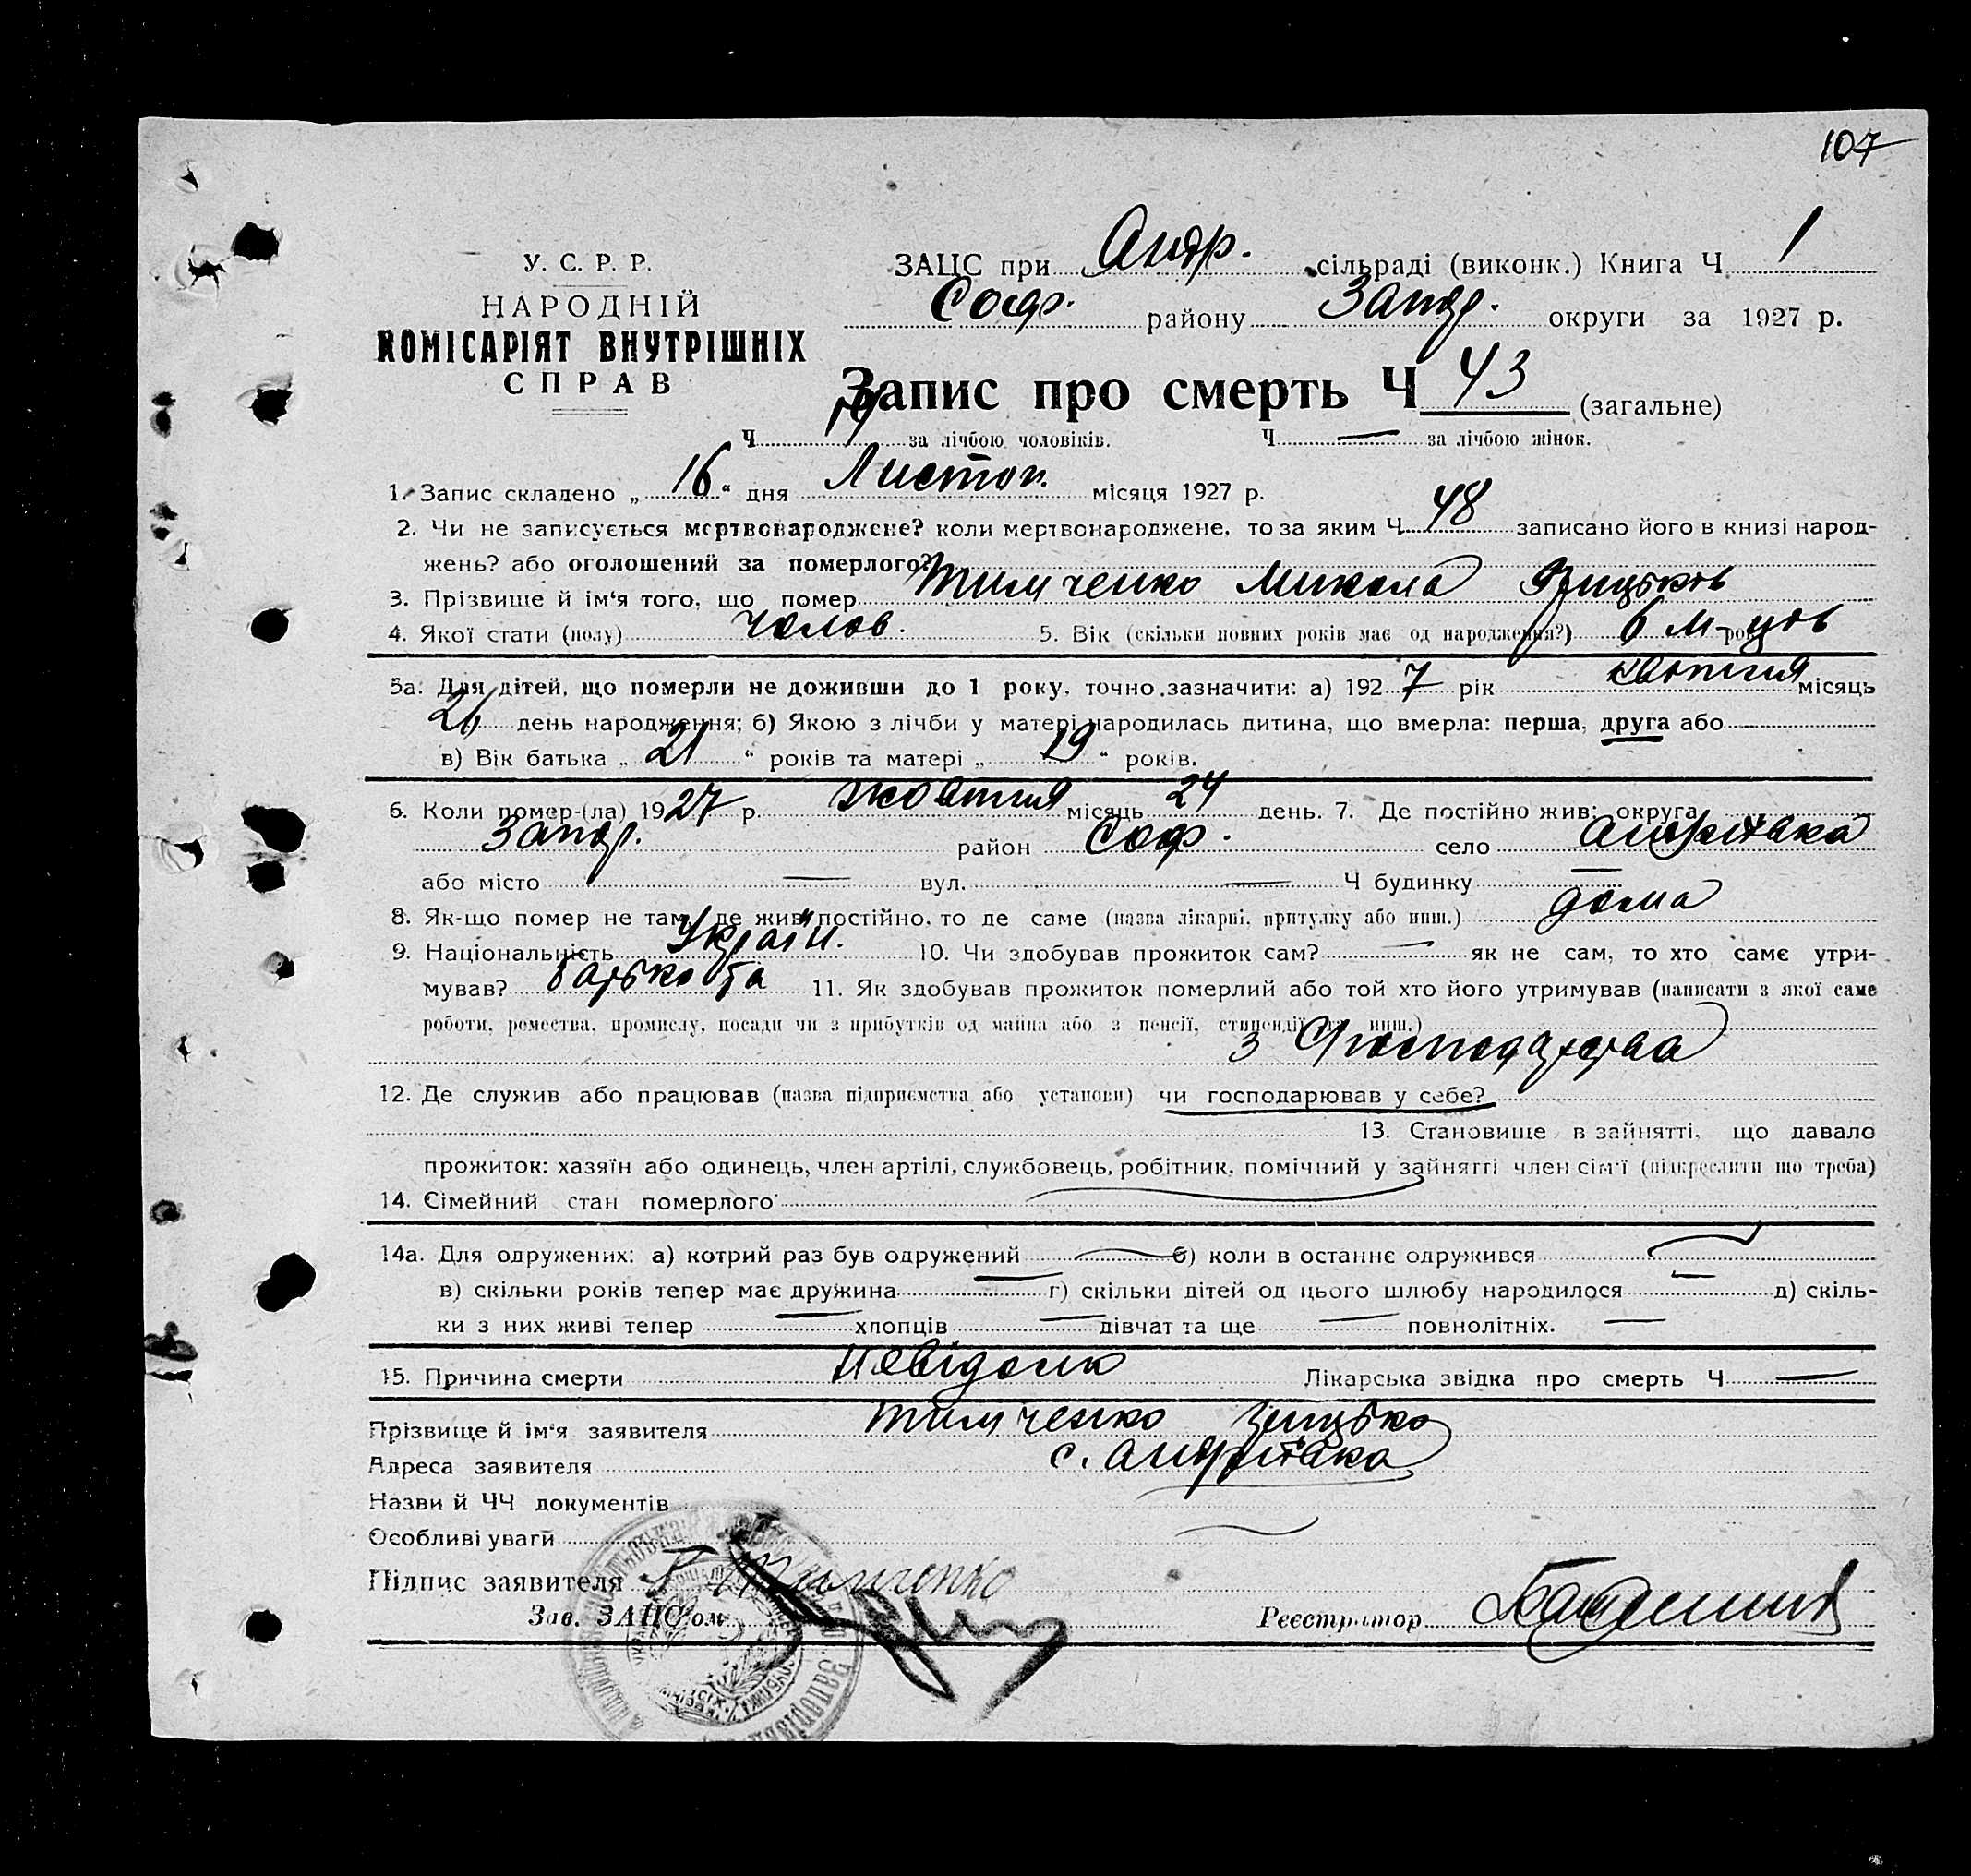 107
У. С. Р. Р.
НАРОДНІЙ
КОМІСАРІЯТ ВНУТРІШНІХ
СПРАВ
ЗАЦС при Андр. сільраді (виконк.) Книга Ч 1
Соф. району Запор. округи за 1927 р.
Запис про смерть Ч 43 (загальне)
Ч 19 за лічбою чоловіків. Ч — за лічбою жінок.
1. Запис складено „ 16 “ дня Листоп. місяця 1927 р.
2. Чи не записується мертвонароджене? коли мертвонароджене, то за яким Ч 48 записано його в книзі народ-
жень? або оголошений за померлого?
3. Прізвище й ім‘я того, що помер Тимченко Микола Грицьків
4. Якої стати (полу) Чолов. 5. Вік (скільки повних років має од народження?) 6 м-ців
5а: Для дітей, що померли не доживши до 1 року, точно зазначити: а) 1927 рік квітня місяць
26 день народження; б) Якою з лічби у матері народилась дитина, що вмерла: перша, друга або
в) Вік батька „ 21 “ років та матері „ 19 “ років.
6. Коли помер-(ла) 1927 р. жовтня місяць 24 день. 7. Де постійно жив: округа
Запор. район Соф. село Андріївка
або місто — вул. — Ч будинку —
8. Як-що помер не там, де жив постійно, то де саме (назва лікарні, притулку або инш.) дома
9. Національність Україн. 10. Чи здобував прожиток сам? — як не сам, то хто саме утри-
мував? батько 11. Як здобував прожиток померлий або той хто його утримував (написати з якої саме
роботи, ремества, промислу, посади чи з прибутків од майна або з пенсії, стипендії та инш.)
З Господарства
12. Де служив або працював (назва підприємства або установи) чи господарював у себе?
13. Становище в зайнятті, що давало
прожиток: хазяїн або одинець, член артілі, службовець, робітник, помічний у зайнятті член сім‘ї (підкреслити що треба)
14. Сімейний стан померлого
14а. Для одружених: а) котрий раз був одружений — б) коли в останнє одружився
в) скільки років тепер має дружина — г) скільки дітей од цього шлюбу народилося — д) скіль-
ки з них живі тепер — хлопців — дівчат та ще — повнолітніх. —
15. Причина смерти невідома Лікарська звідка про смерть Ч —
Прізвище й ім‘я заявителя Тимченко Грицько
Адреса заявителя с. Андріївка
Назви й ЧЧ документів
Особливі уваги
Підпис заявителя Г Тимченко
Зав. ЗАЦС‘ом Реєстратор